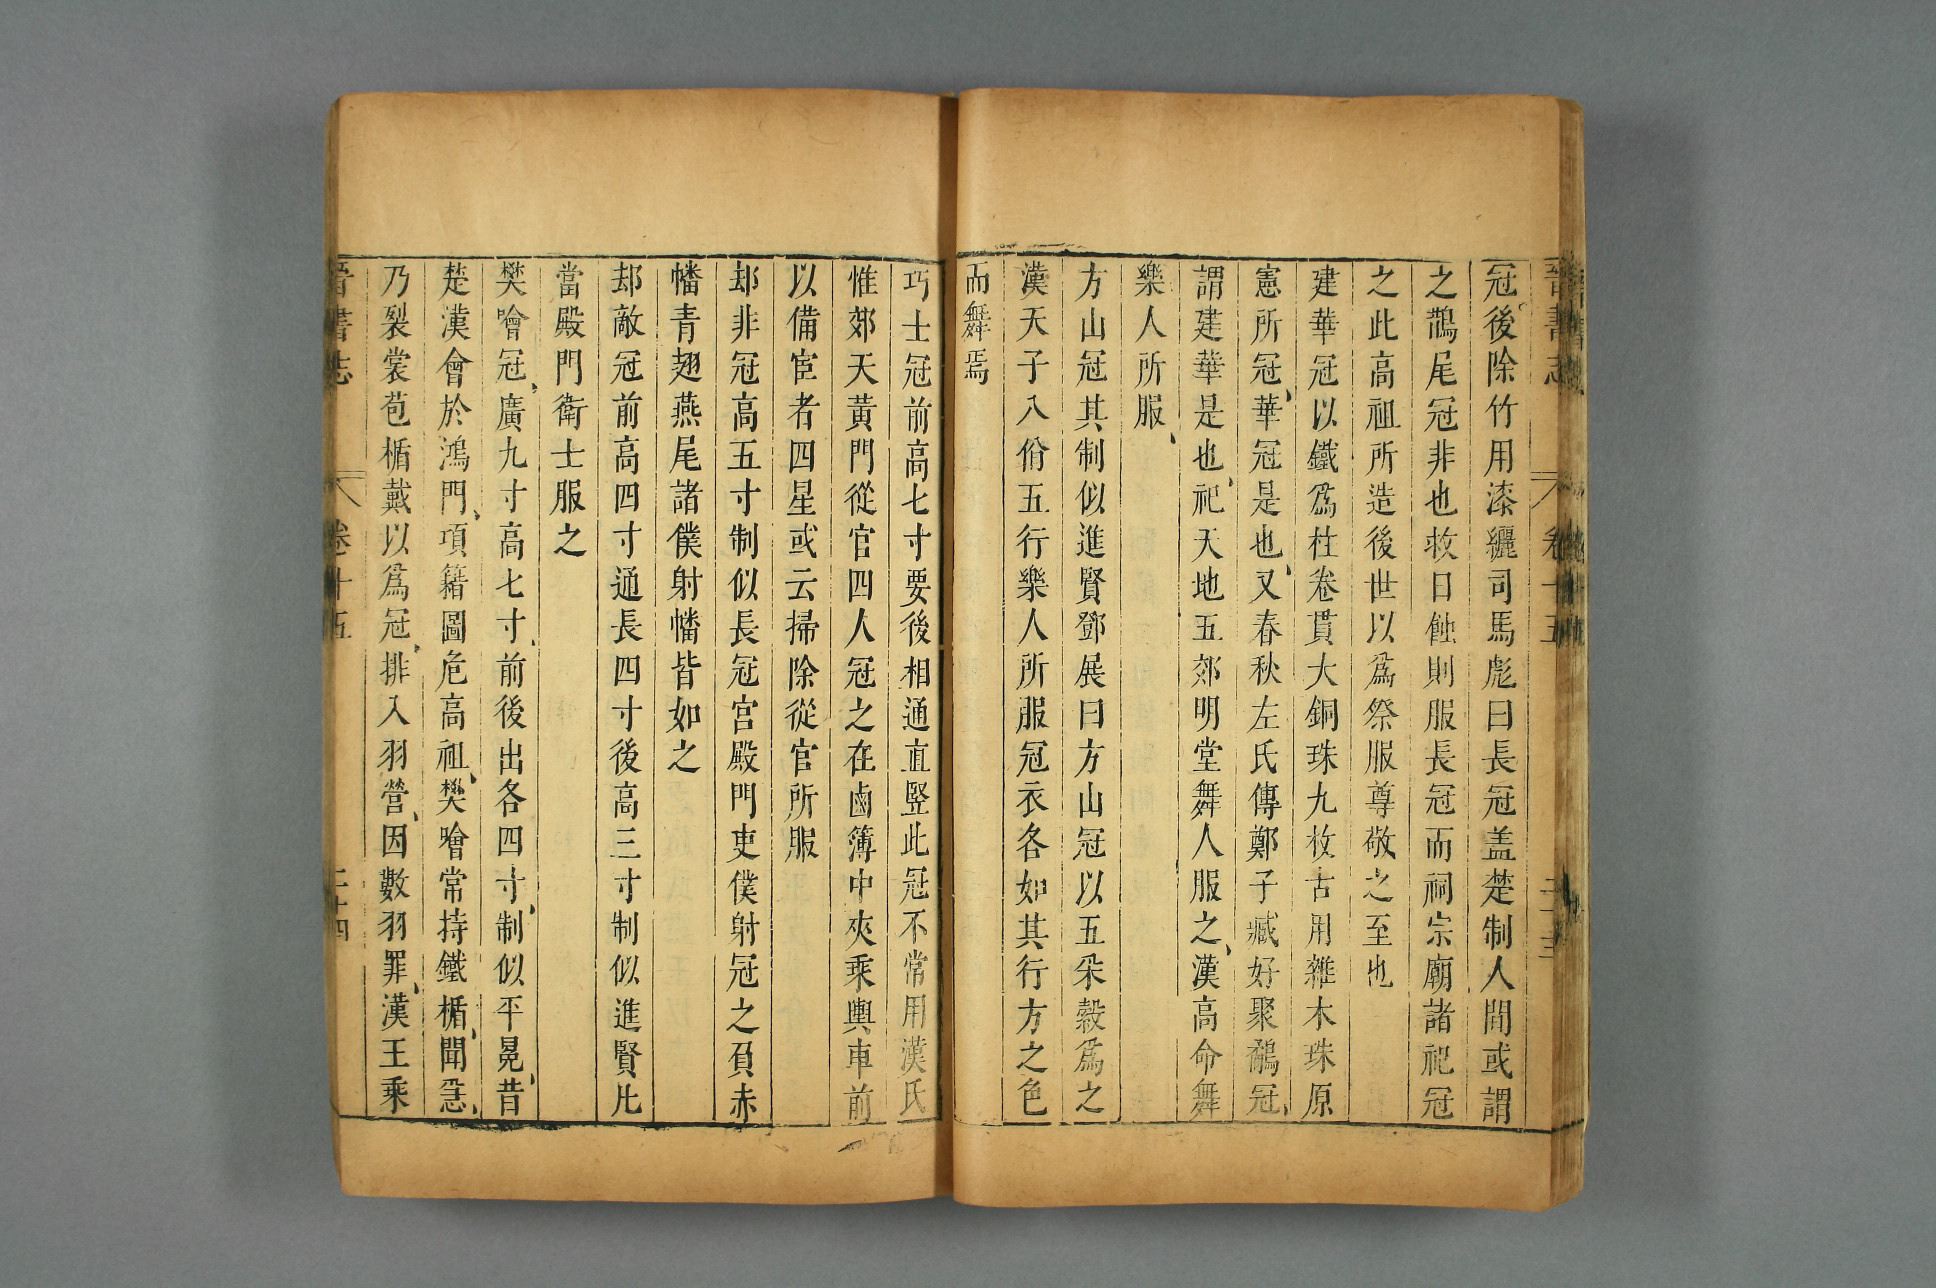 晋書志 卷十五 二十三
冠後除竹用漆纚司馬彪曰長冠盖楚制人間或謂
之鵲尾冠非也救日蝕則服長冠而祠宗廟諸祀冠
之此高祖所造後世以爲祭服尊敬之至也
建華冠以鐵爲柱卷貫大銅珠九枚古用雜木珠原
憲所冠華冠是也又春秋左氏傳鄭子臧好聚鷸冠
謂建華是也祀天地五郊明堂舞人服之漢高命舞
樂人所服
方山冠其制似進賢鄧展曰方山冠以五采縠爲之
漢天子八佾五行樂人所服冠衣各如其行方之色
而舞焉
巧士冠前高七寸要後相通直竪此冠不常用漢氏
惟郊天黃門從官四人冠之在鹵簿中夾乘輿車前
以備宦者四星或云掃除從官所服
却非冠高五寸制似長冠宫殿門吏僕射冠之負赤
幡青翅燕尾諸僕射幡皆如之
却敵冠前高四寸通長四寸後高三寸制似進賢凡
當殿門衛士服之
樊噲冠廣九寸高七寸前後出各四寸制似平冕昔
楚漢會於鴻門項籍圖危高祖樊噲常持鐵楯聞急
乃裂裳苞楯戴以爲冠排入羽營因數羽罪漢王乘
晋書志 卷十五 二十四